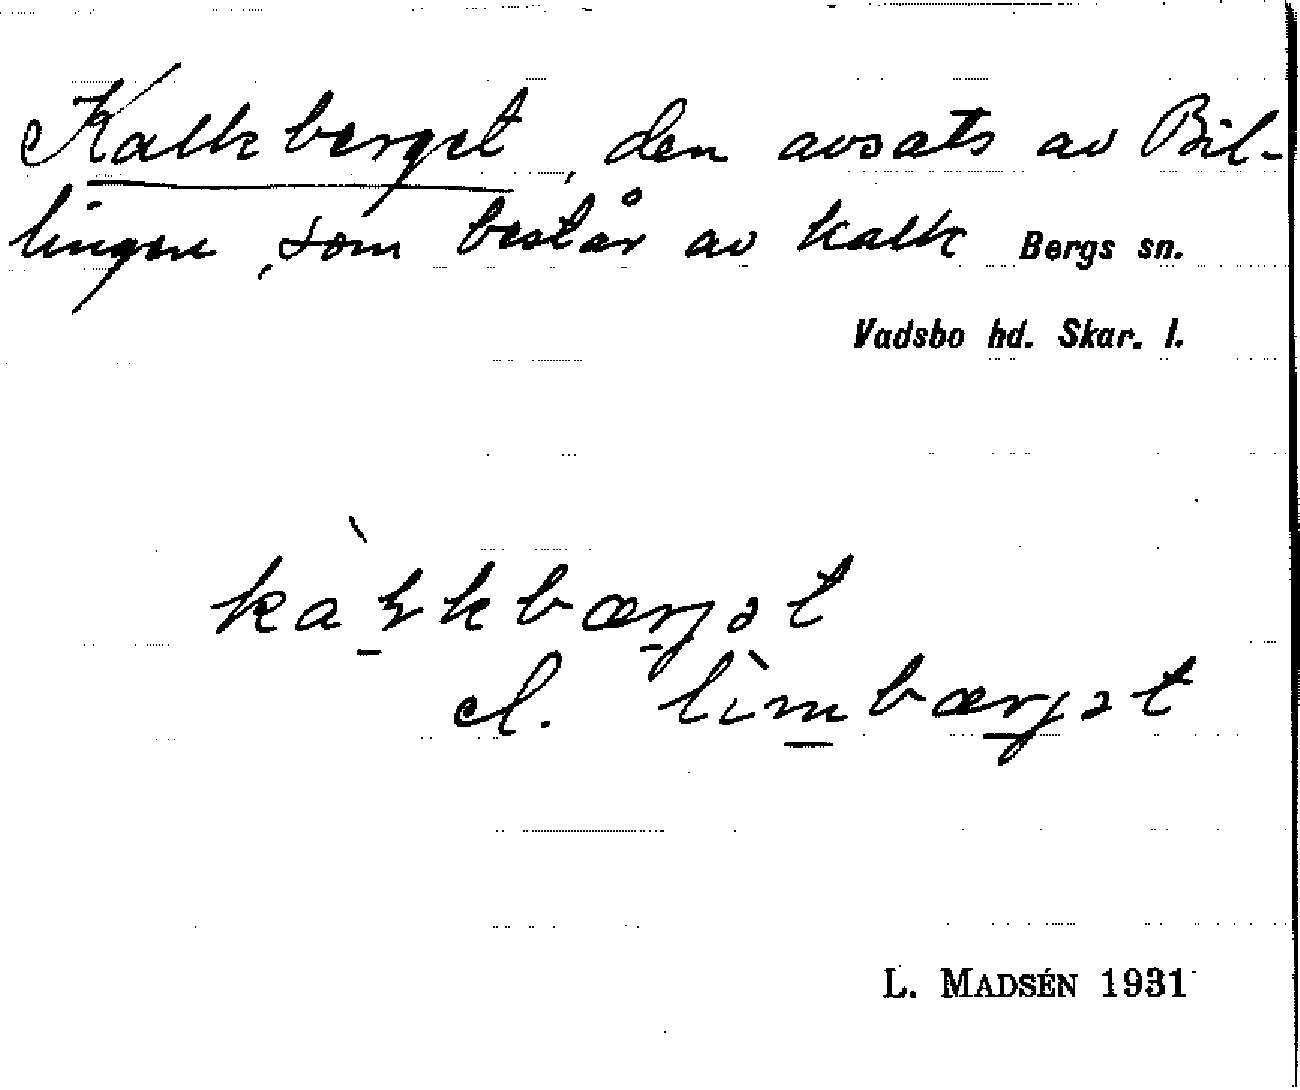 Kalkberget, den avsats av Bil-
lingen, som består av kalk Bergs sn.
Vadsbo hd. Skar. l.
kàłkbærjət
el. lìmbærjət
L. MADSÉN 1931